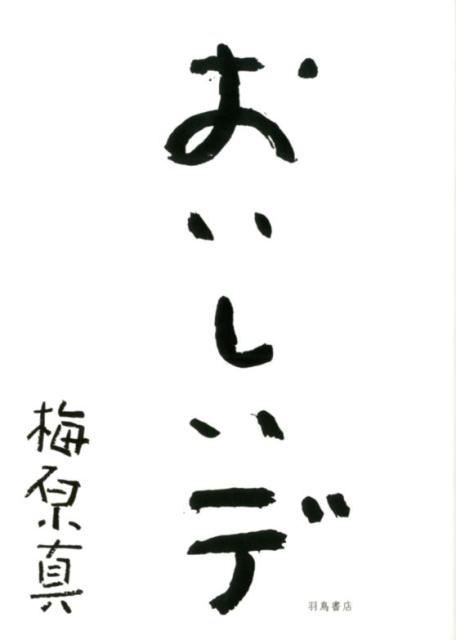 おいしいデ
梅原真
羽鳥書店